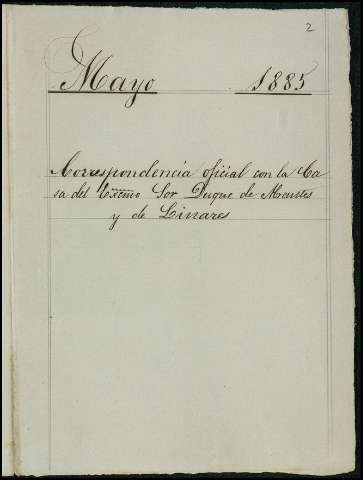 2
Mayo 1885
Correspondencia oficial con la Ca
sa del Exc̃mo Sor Duque de Maussés
y de Linares